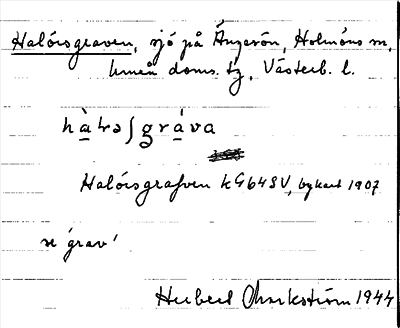 Halörsgraven, sjö på Ängesön, Holmöns sn,
Umeå doms. tg, Västerb. l.
hàɬɘʃgráva
Halörsgrafven kG64SV, bykart 1907
sv 'grav'
Herbert Markström 1944